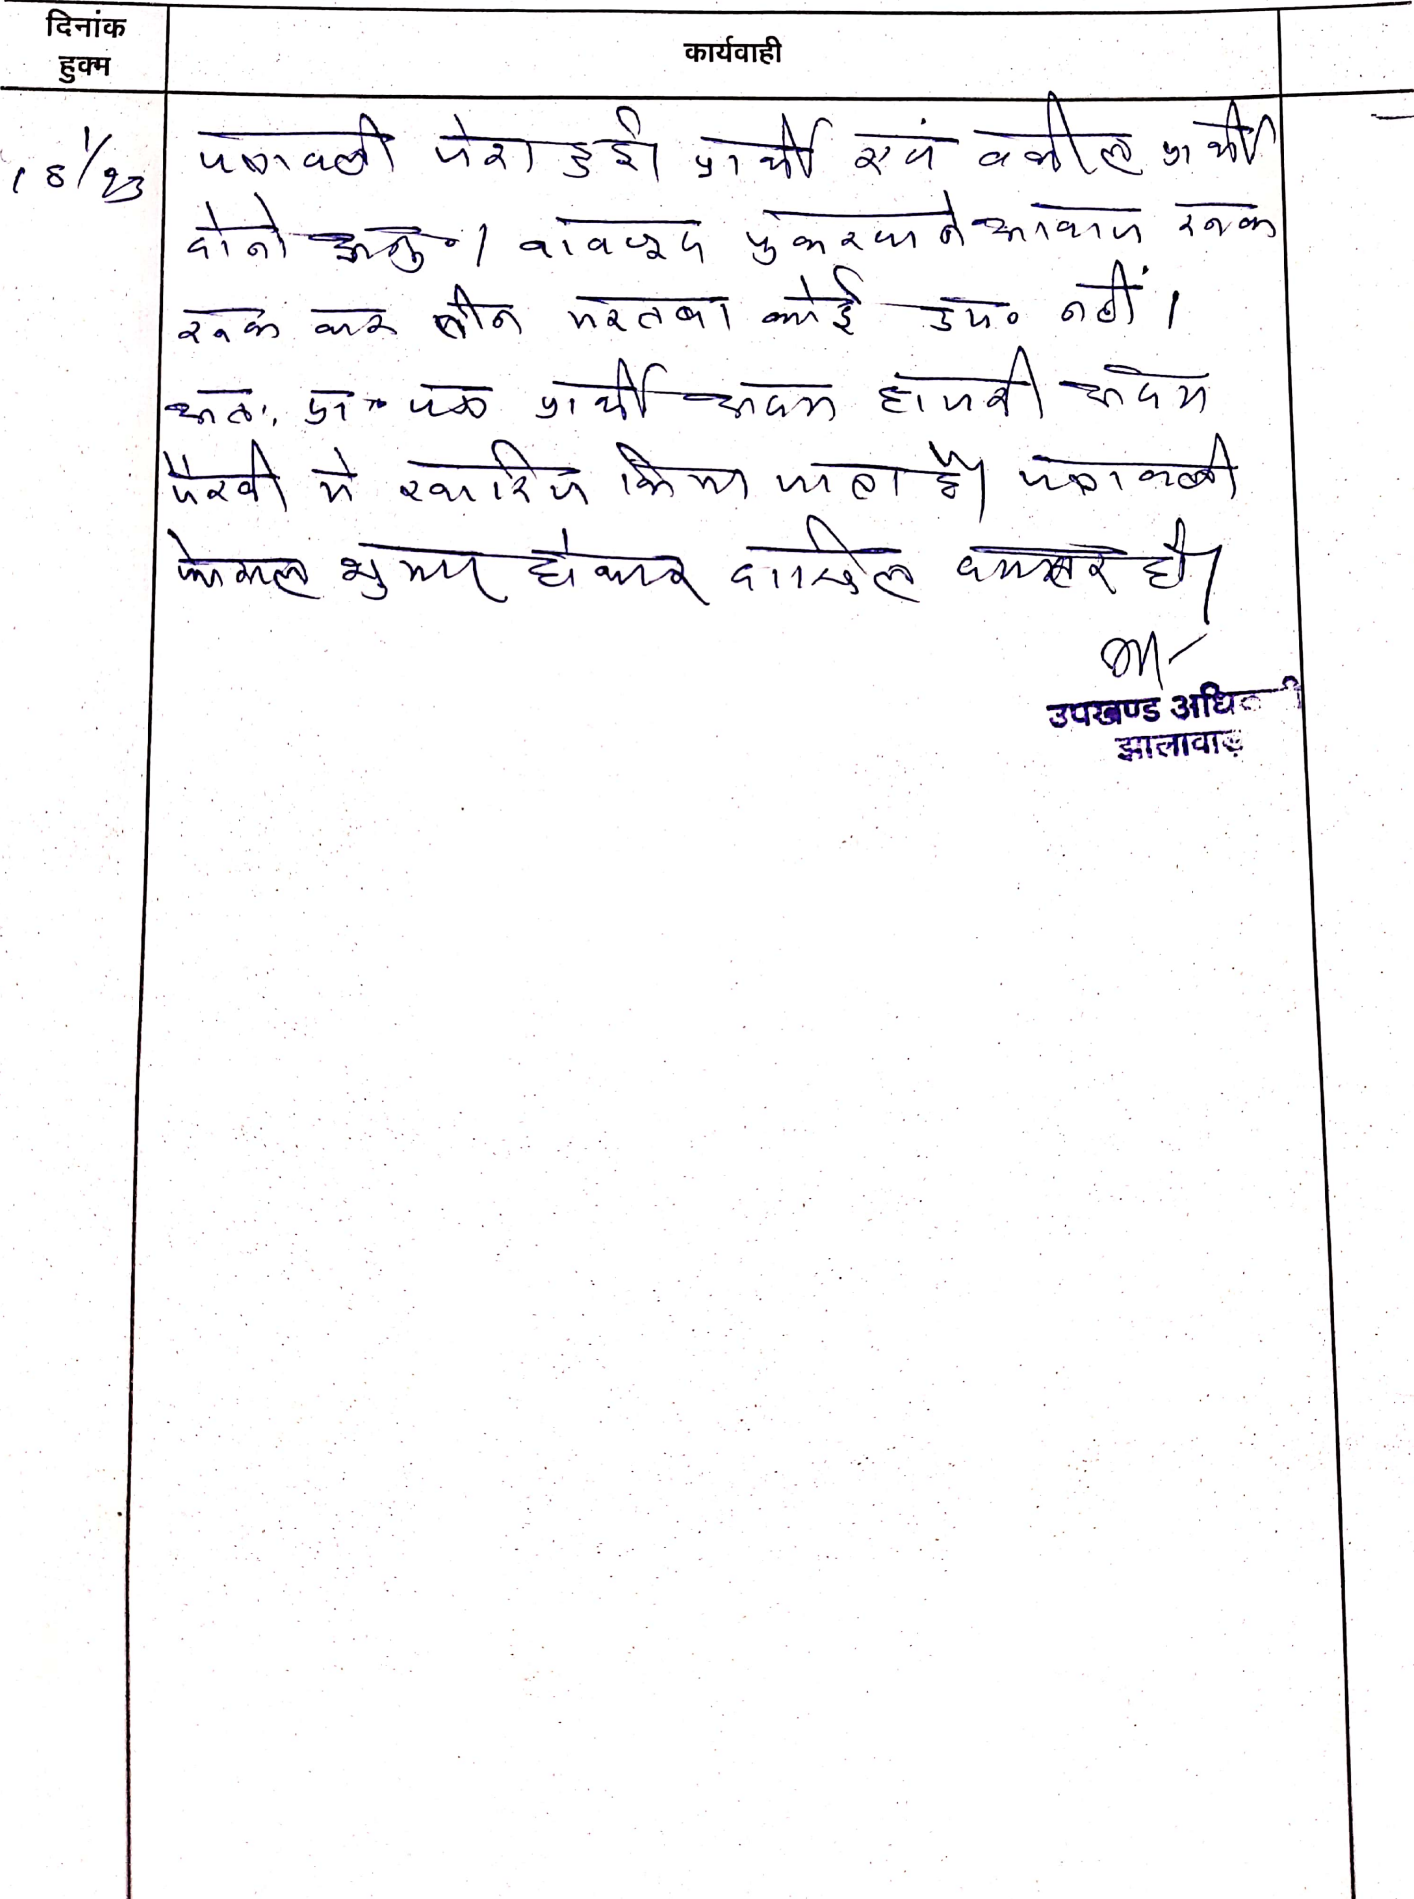 दिनांक
हुक्म
कार्यवाही
18/1/23
पत्रावली पेश हुई। प्रार्थी एवं वकील प्रार्थी
दोनो अनु०। बावजूद पुकरवाने आवाज रूक
रूक कर तीन मरतबा कोई उप० नहीं।
अतः प्रा० पत्र प्रार्थी अदम हाजरी अदम
पैरवी मे खारिज किया जाता है। पत्रावली
फैसल शुमार होकर दाखिल दफ्तर हो।
उपखण्ड अधिकारी
झालावाड़